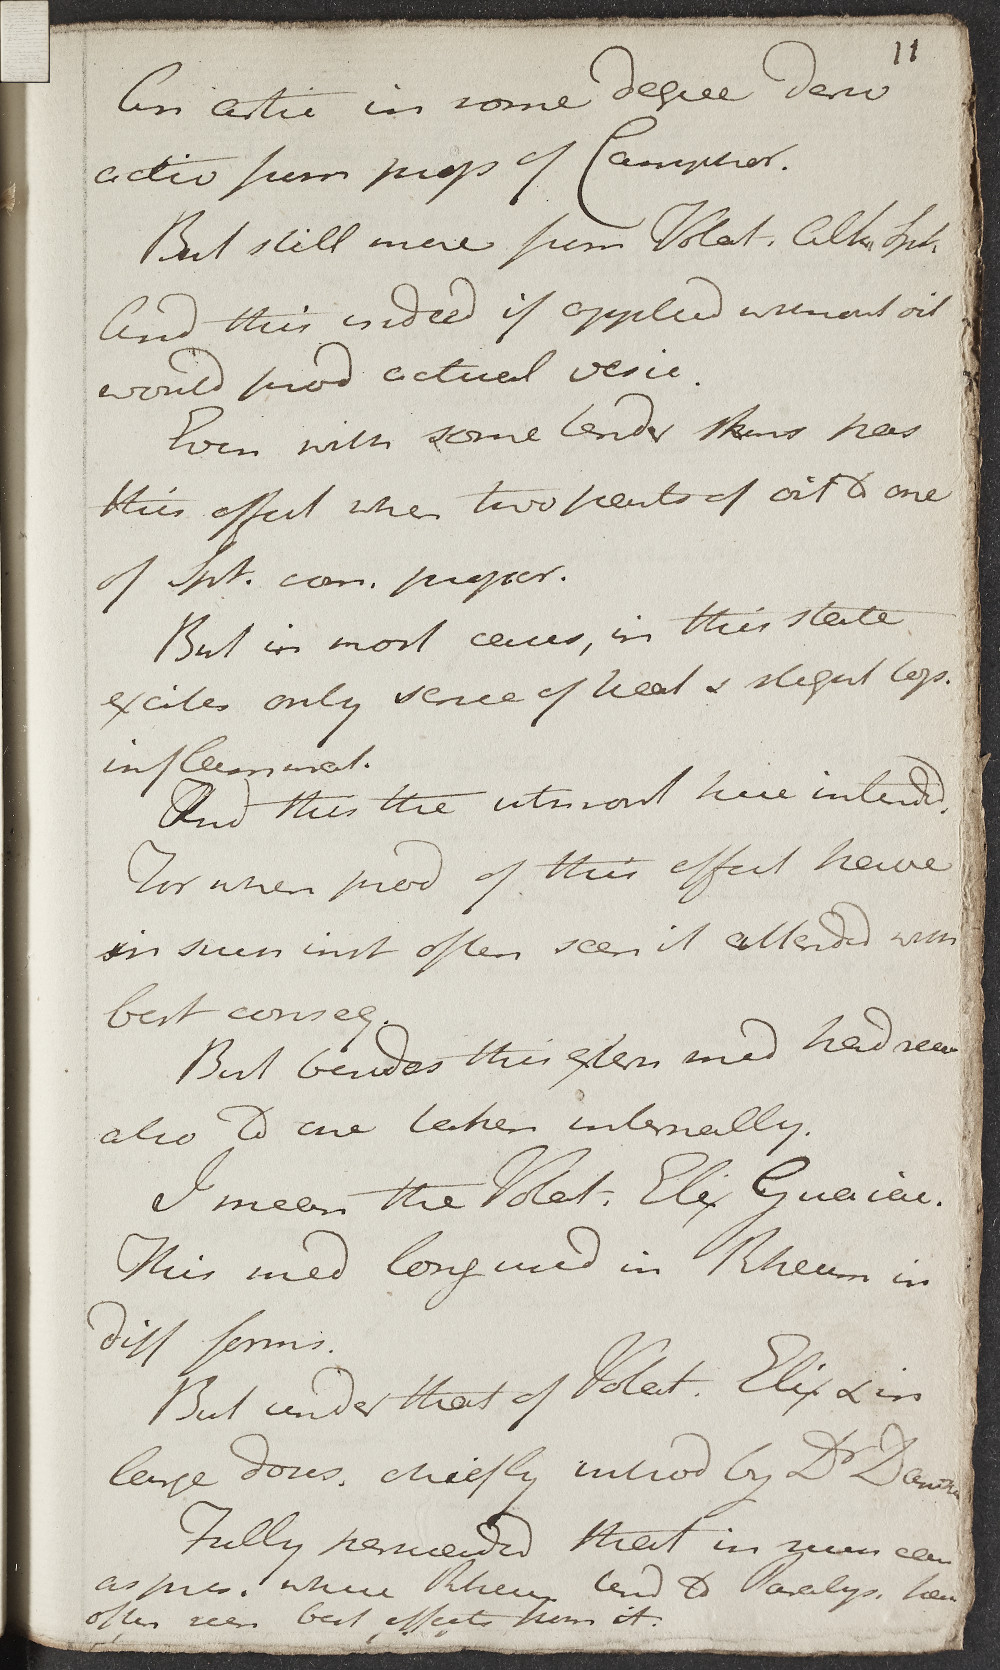 11
An actio in some degree deriv
activ from preps of Camphor.
But still more from Volat. Alka Spt.
And this indeed if applied without oil
would prod actual vesic.
Even with some tender skins has
this effect when two parts of oil to one
of Spt. corn. prepar.
But in most cases, in this state
excites only sense of heat & slight tops.
inflammat.
And this the utmost here intended.
For when prod of this effect have
in such inst often seen it attended with
best conseq.
But besides this extern med had recou
also to one taken internally.
I mean the Volat. Elix Guaiac.
This med long used in Rheum in
diff forms.
But under that of Volat. Elix & in
large doses. chiefly introd by Dr Dawson
Fully persuaded that in such cases
as pres. where Rheum tend to Paralys. have
often seen best effects from it.